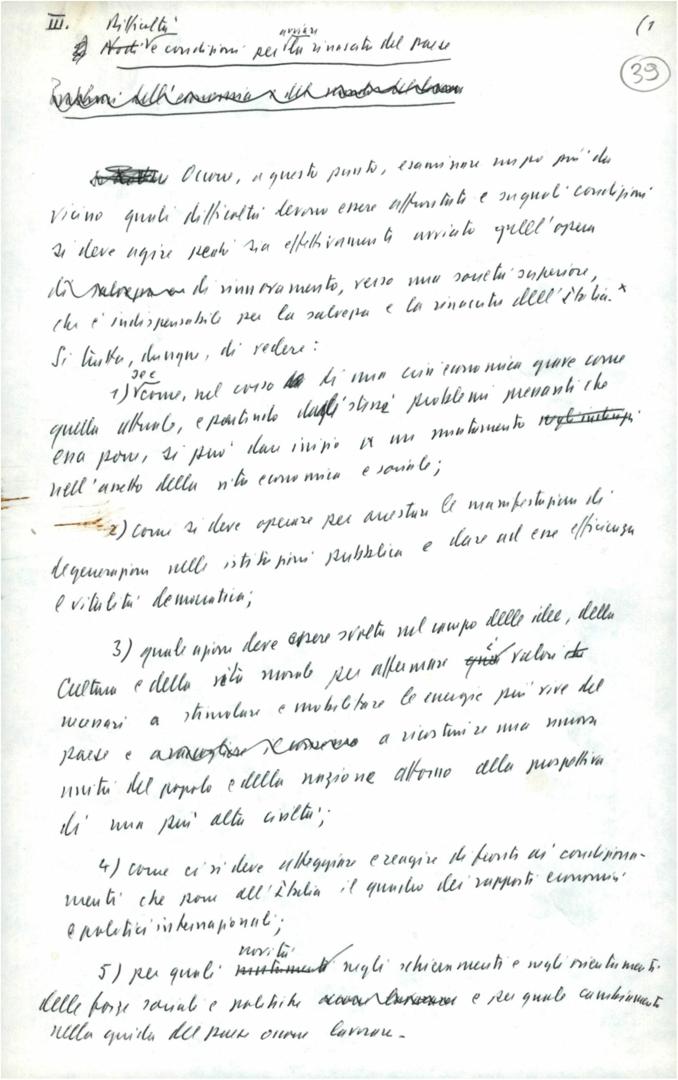 III. Difficoltà (1
e condizioni per avviare la rinascita del paese
39
Occorre, a questo punto, esaminare un po' più da
vicino quali difficoltà devono essere affrontate e su quali condizioni
si deve agire perché sia effettivamente avviata quell'opera
di rinnovamento, verso una società superiore,
che è indispensabile per la salvezza e la rinascita dell'Italia.x
Si tratta, dunque, di vedere:
1) se e come, nel corso di una crisi economica grave come
quella attuale, e partendo dagli stessi problemi pressanti che
essa pone, si può dare inizio a un mutamento
nell'assetto della vita economica e sociale;
2) come si deve operare per arrestare le manifestazioni di
degenerazione nelle istituzioni pubbliche e dare ad esse efficienza
e vitalità democratica;
3) quale azione deve essere svolta nel campo delle idee, della
cultura e della vita morale per affermare i valori
necessari a stimolare e mobilitare le energie più vive del
paese e a ricostruire una nuova
unità del popolo e della nazione attorno alla prospettiva
di una più alta civiltà;
4) come ci si deve atteggiare e reagire di fronte ai condiziona-
menti che pone all'Italia il quadro dei rapporti economici
e politici internazionali;
5) per quali novità negli schieramenti e negli orientamenti
delle forze sociali e politiche e per quale cambiamento
nella guida del paese occorre lavorare.